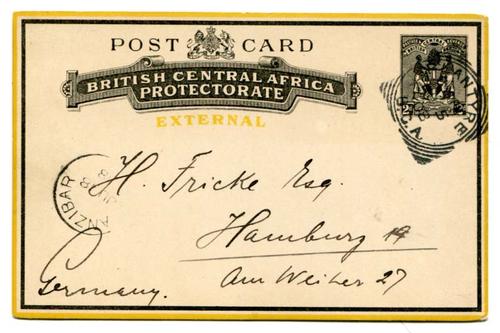 POST CARD
BRITISH CENTRAL AFRICA
PROTECTORATE
EXTERNAL
ANTYRE
B.C.A.
ANZIBAR
H. Fricke Esq.
Hamburg 19
Am Weiher 27
Germany.